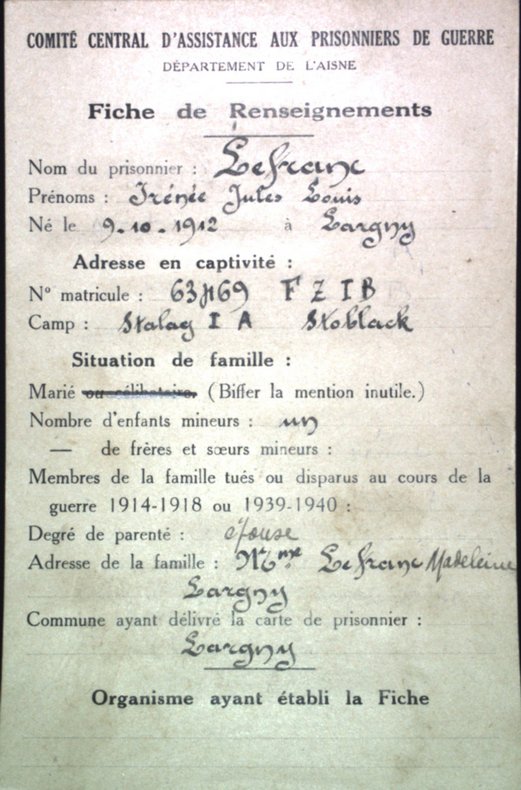 COMITÉ CENTRAL D'ASSISTANCE AUX PRISONNIERS DE GUERRE
DÉPARTEMENT DE L'AISNE
Fiche de Renseignements
Nom du prisonnier : Lefranc
Prénoms : Irénée Jules Louis
Né le 9-10-1912 à Largny
Adresse en captivité :
N° matricule : F Z I B
Camp : Stalag I A Stoblack
Situation de famille :
Marié ou célibataire. (Biffer la mention inutile.)
Nombre d'enfants mineurs : un
— de frères et sœurs mineurs :
Membres de la famille tués ou disparus au cours de la
guerre 1914-1918 ou 1939-1940 :
Degré de parenté : épouse
Adresse de la famille : Mme Lefranc Madeleine
Largny
Commune ayant délivré la carte de prisonnier :
Largny
Organisme ayant établi la Fiche